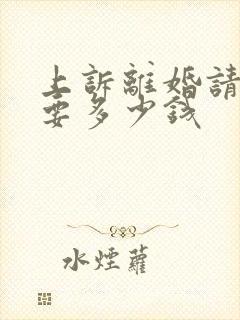 上訴離婚請
要多少錢
水煙蘿